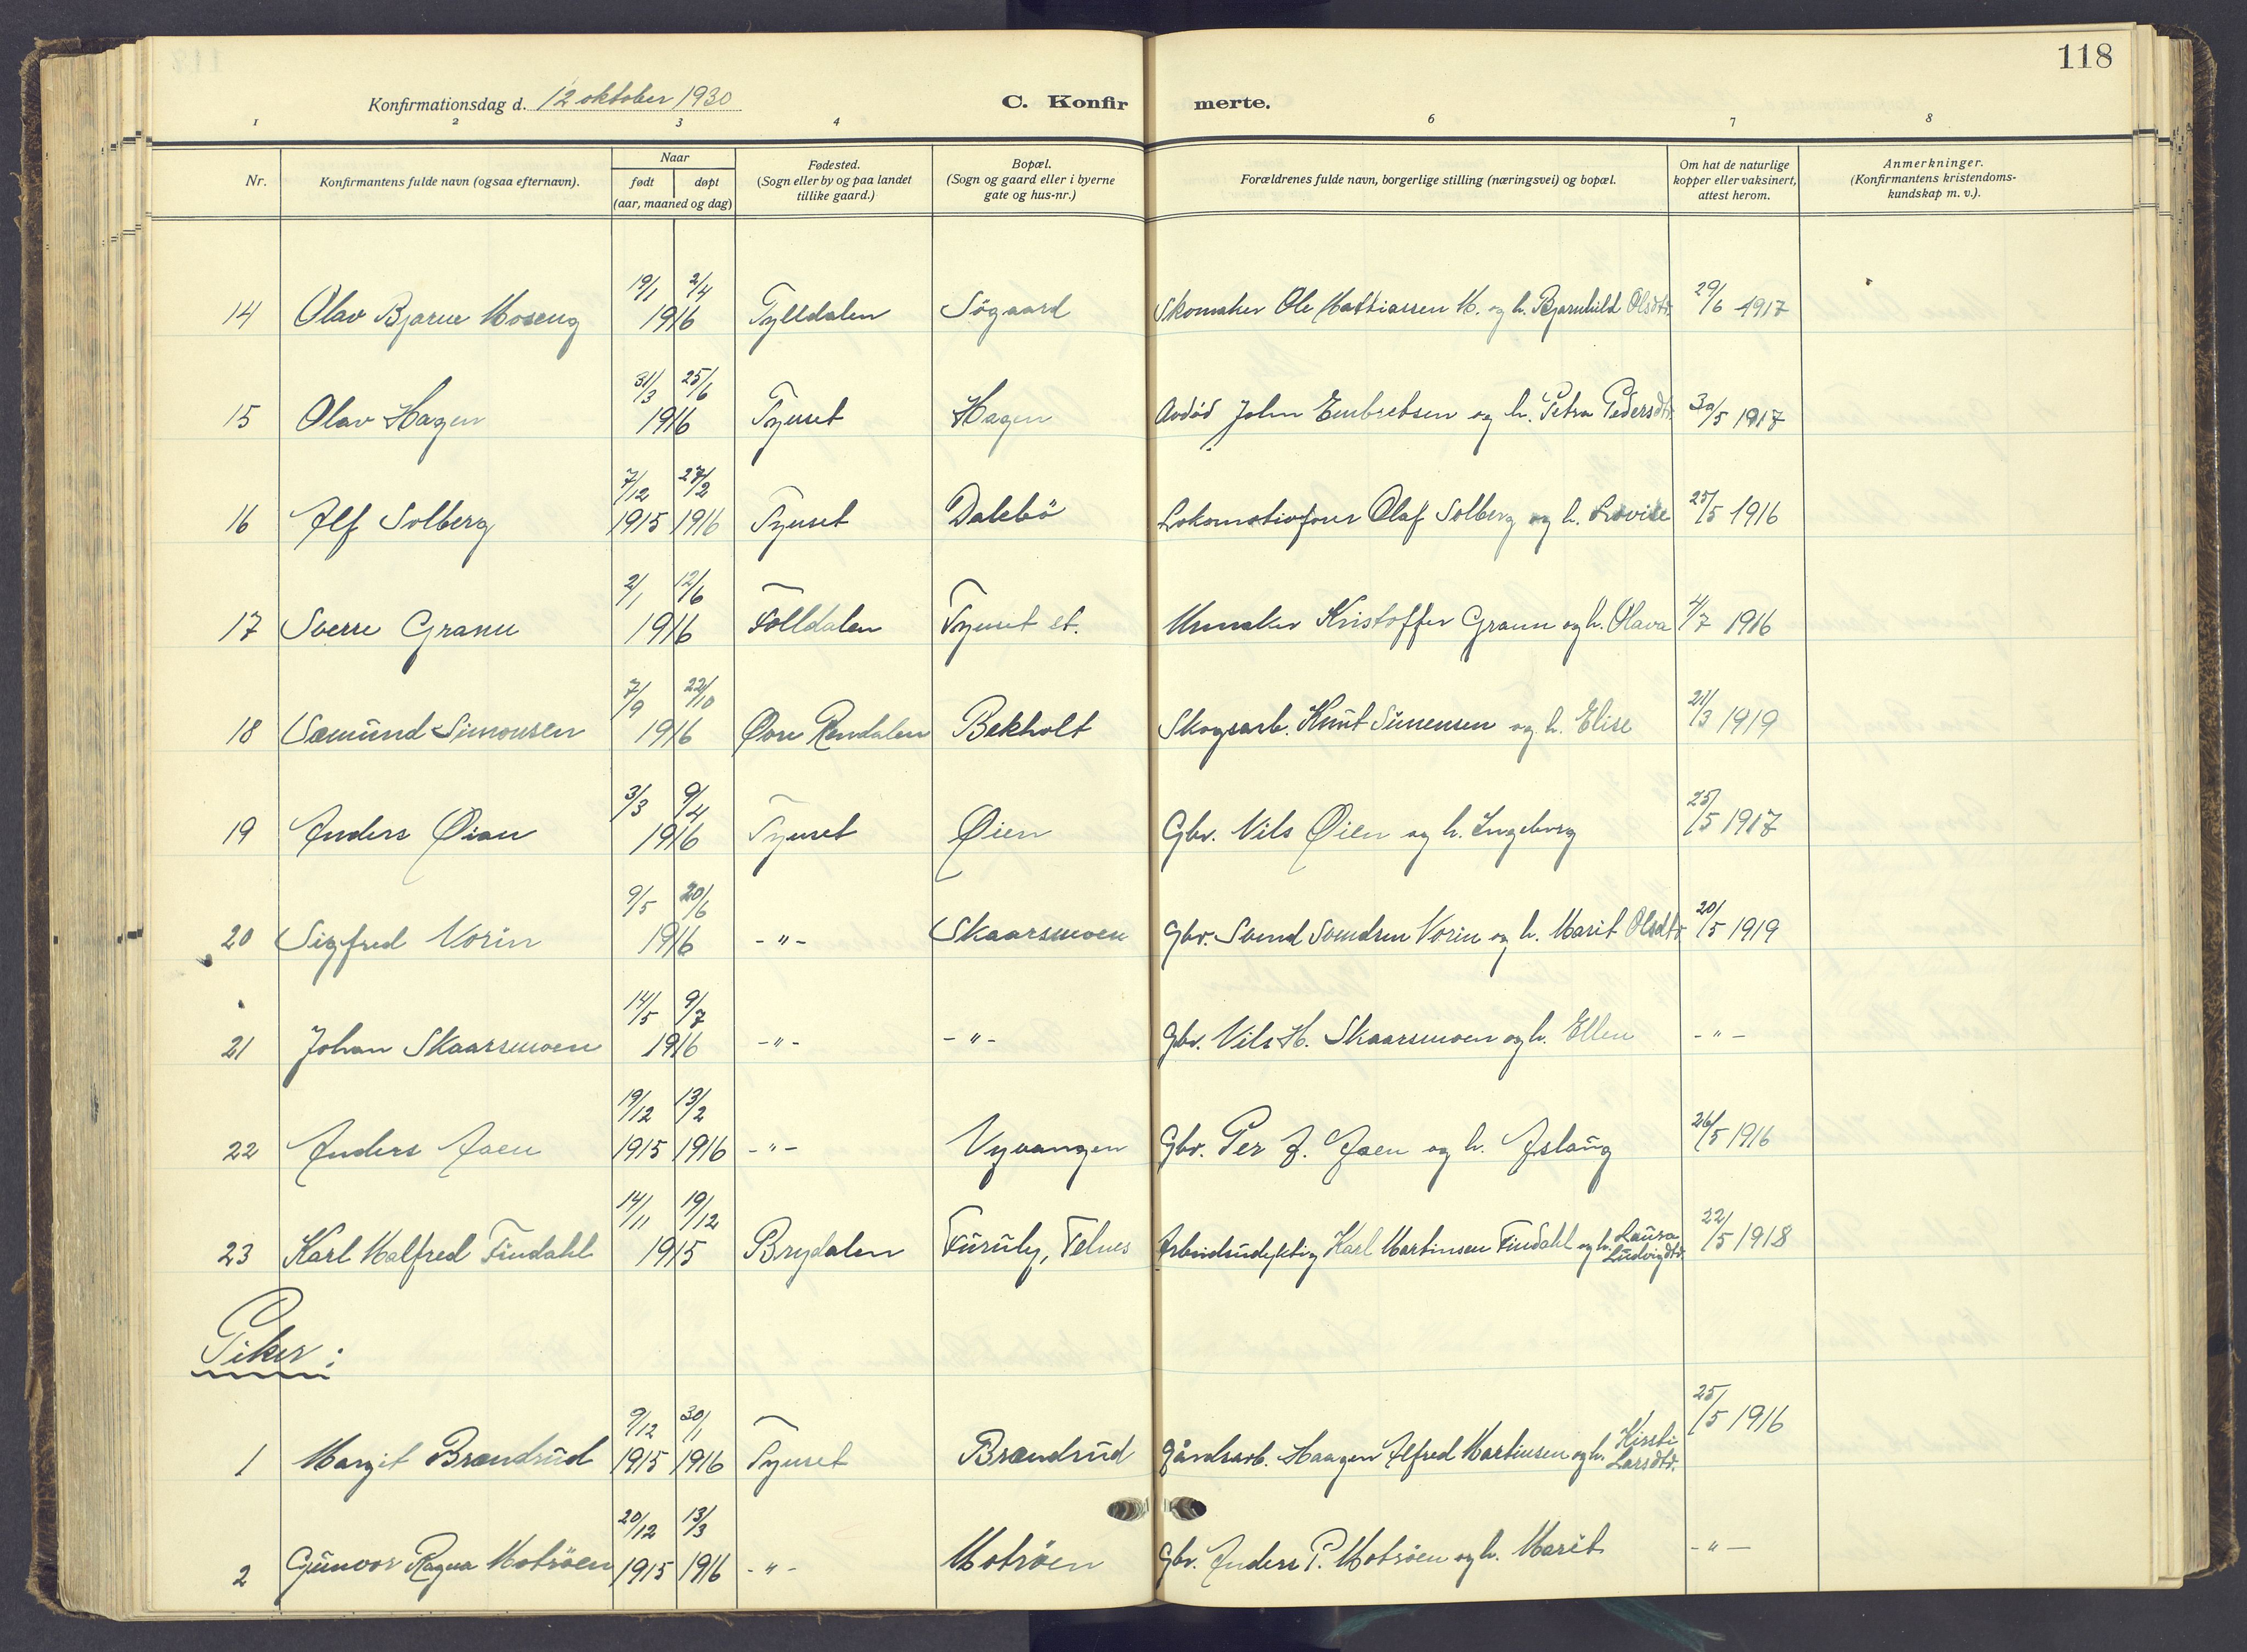 118
Konfirmationsdag d. 12 oktober 1930 C. Konfir merte.
1 2 3 4 6 7 8
Nr. Konfirmantens fulde navn (ogsaa efternavn). Naar født døpt (aar, maaned og dag) Fødested. (Sogn eller by og paa landet tillike gaard.) Bopæl. (Sogn og gaard eller i byerne gate og hus-nr.) Forældrenes fulde navn, borgerlige stilling (næringsvei) og bopæl. Om hat de naturlige kopper eller vaksinert, attest herom. Anmerkninger. (Konfirmantens kristendoms-kundskap m. v.).
14 Olav Bjarne Moseng 19/1 2/4 1916 Tylldalen Søgaard Skomaker Ole Mattiassen M. og h. Bjarnhild Olsdtr. 29/6 1917
15 Olav Hagen 31/3 25/6 1916 Tynset Hagen Avdød John Embretsen og h. Petra Pedersdtr. 30/5 1917
16 Alf Solberg 7/12 1915 27/2 1916 Tynset Dalebö Lokomotivfører Olaf Solberg og h. Lovise 25/5 1916
17 Sverre Grann 2/1 12/6 1916 Folldalen Tynset st. Urmaker Kristoffer Grann og h. Olava 4/7 1916
18 Sæmund Simonsen 7/9 22/10 1916 Øvre Rendalen Bekholt Skogsarb. Knut Simensen og h. Elise 21/3 1919
19 Anders Øian 3/3 9/4 1916 Tynset Øien Gbr. Nils Øien og h. Ingeborg 25/5 1917
20 Sigfred Vorin 9/5 20/6 1916 -"- Skaarsmoen Gbr. Svend Svendsen Vorin og h. Marit Olsdtr. 20/5 1919
21 Johan Skaarsmoen 14/5 9/7 1916 -"- -"- Gbr. Nils H. Skaarsmoen og h. Ellen -"-
22 Anders Aaen 19/12 1915 13/2 1916 -"- Nyvangen Gbr. Per J. Aaen og h. Aslaug 26/5 1916
23 Karl Malfred Findahl 14/11 19/12 1915 Brydalen Furuly, Telnes Arbeidsudyktig Karl Martinsen Findahl og h. Laura Ludvigdtr. 22/5 1918
Piker:
1 Margit Brændrud 9/12 1915 30/1 1916 Tynset Brændrud Gårdsarb. Haagen Alfred Martinsen og h. Kirsti Larsdtr. 25/5 1916
2 Gunvor Ragna Motröen 20/12 1915 13/3 1916 -"- Motröen Gbr. Anders P. Motröen og h. Marit -"-